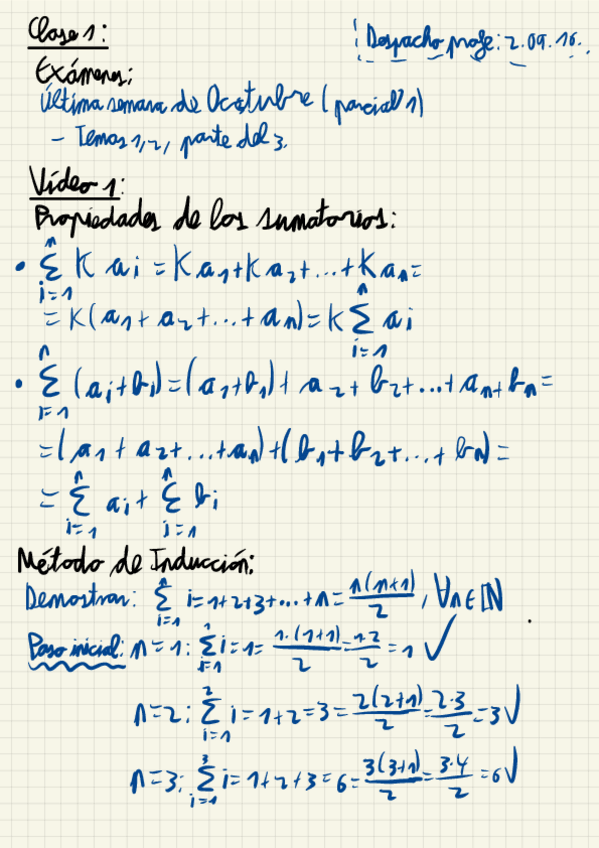 Clase 1:
¡Despacho profe: 2.09.16.
Exámenes:
Última semana de Octubre (parcial 1)
- Temas 1, 2, parte del 3.
Vídeo 1:
Propiedades de los sumatorios:
• ∑_{i=1}^{n} K a_i = K a_1 + K a_2 + ... + K a_n =
= K(a_1 + a_2 + ... + a_n) = K ∑_{i=1}^{n} a_i
• ∑_{i=1}^{n} (a_i + b_i) = (a_1 + b_1) + a_2 + b_2 + ... + a_n + b_n =
= (a_1 + a_2 + ... + a_n) + (b_1 + b_2 + ... + b_n) =
= ∑_{i=1}^{n} a_i + ∑_{i=1}^{n} b_i
Método de Inducción:
Demostrar: ∑_{i=1}^{n} i = 1+2+3+...+n = n(n+1)/2, ∀n∈ℕ
Paso inicial: n=1: ∑_{i=1}^{1} i = 1 = 1·(1+1)/2 = 1·2/2 = 1 ✓
n=2: ∑_{i=1}^{2} i = 1+2 = 3 = 2(2+1)/2 = 2·3/2 = 3 ✓
n=3: ∑_{i=1}^{3} i = 1+2+3 = 6 = 3(3+1)/2 = 3·4/2 = 6 ✓